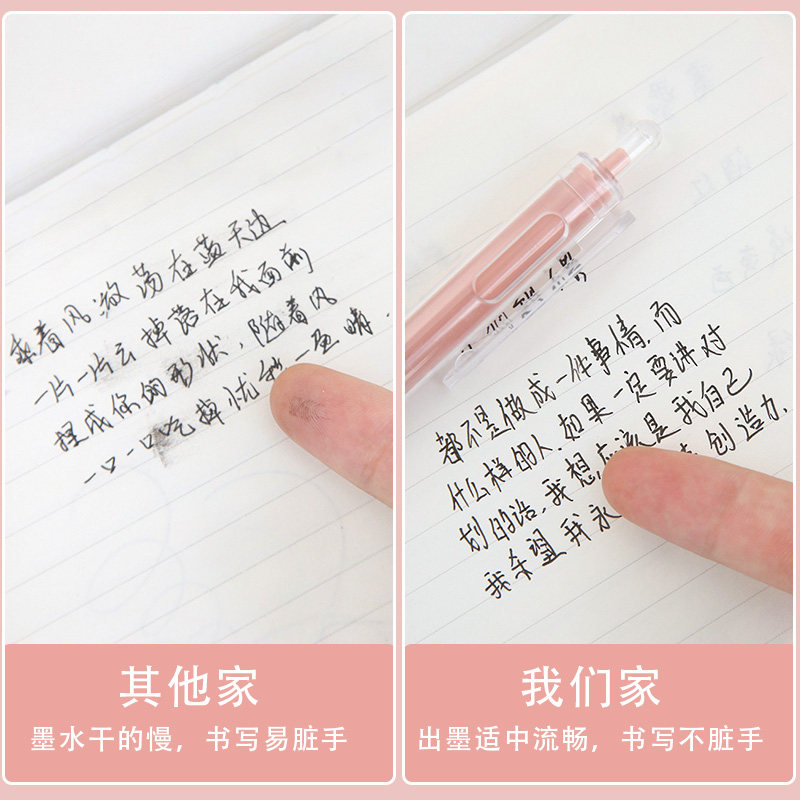 乘着风激荡在蓝天边
一片一片云掉落在我面前
捏成你的形状,随着风
一口一口吃掉忧愁
都不是做成一件事情,而
什么样的人.如果一定要讲对
划的话.我想应该是我自己
我希望我永 创造力.
其他家
墨水干的慢,书写易脏手
我们家
出墨适中流畅,书写不脏手